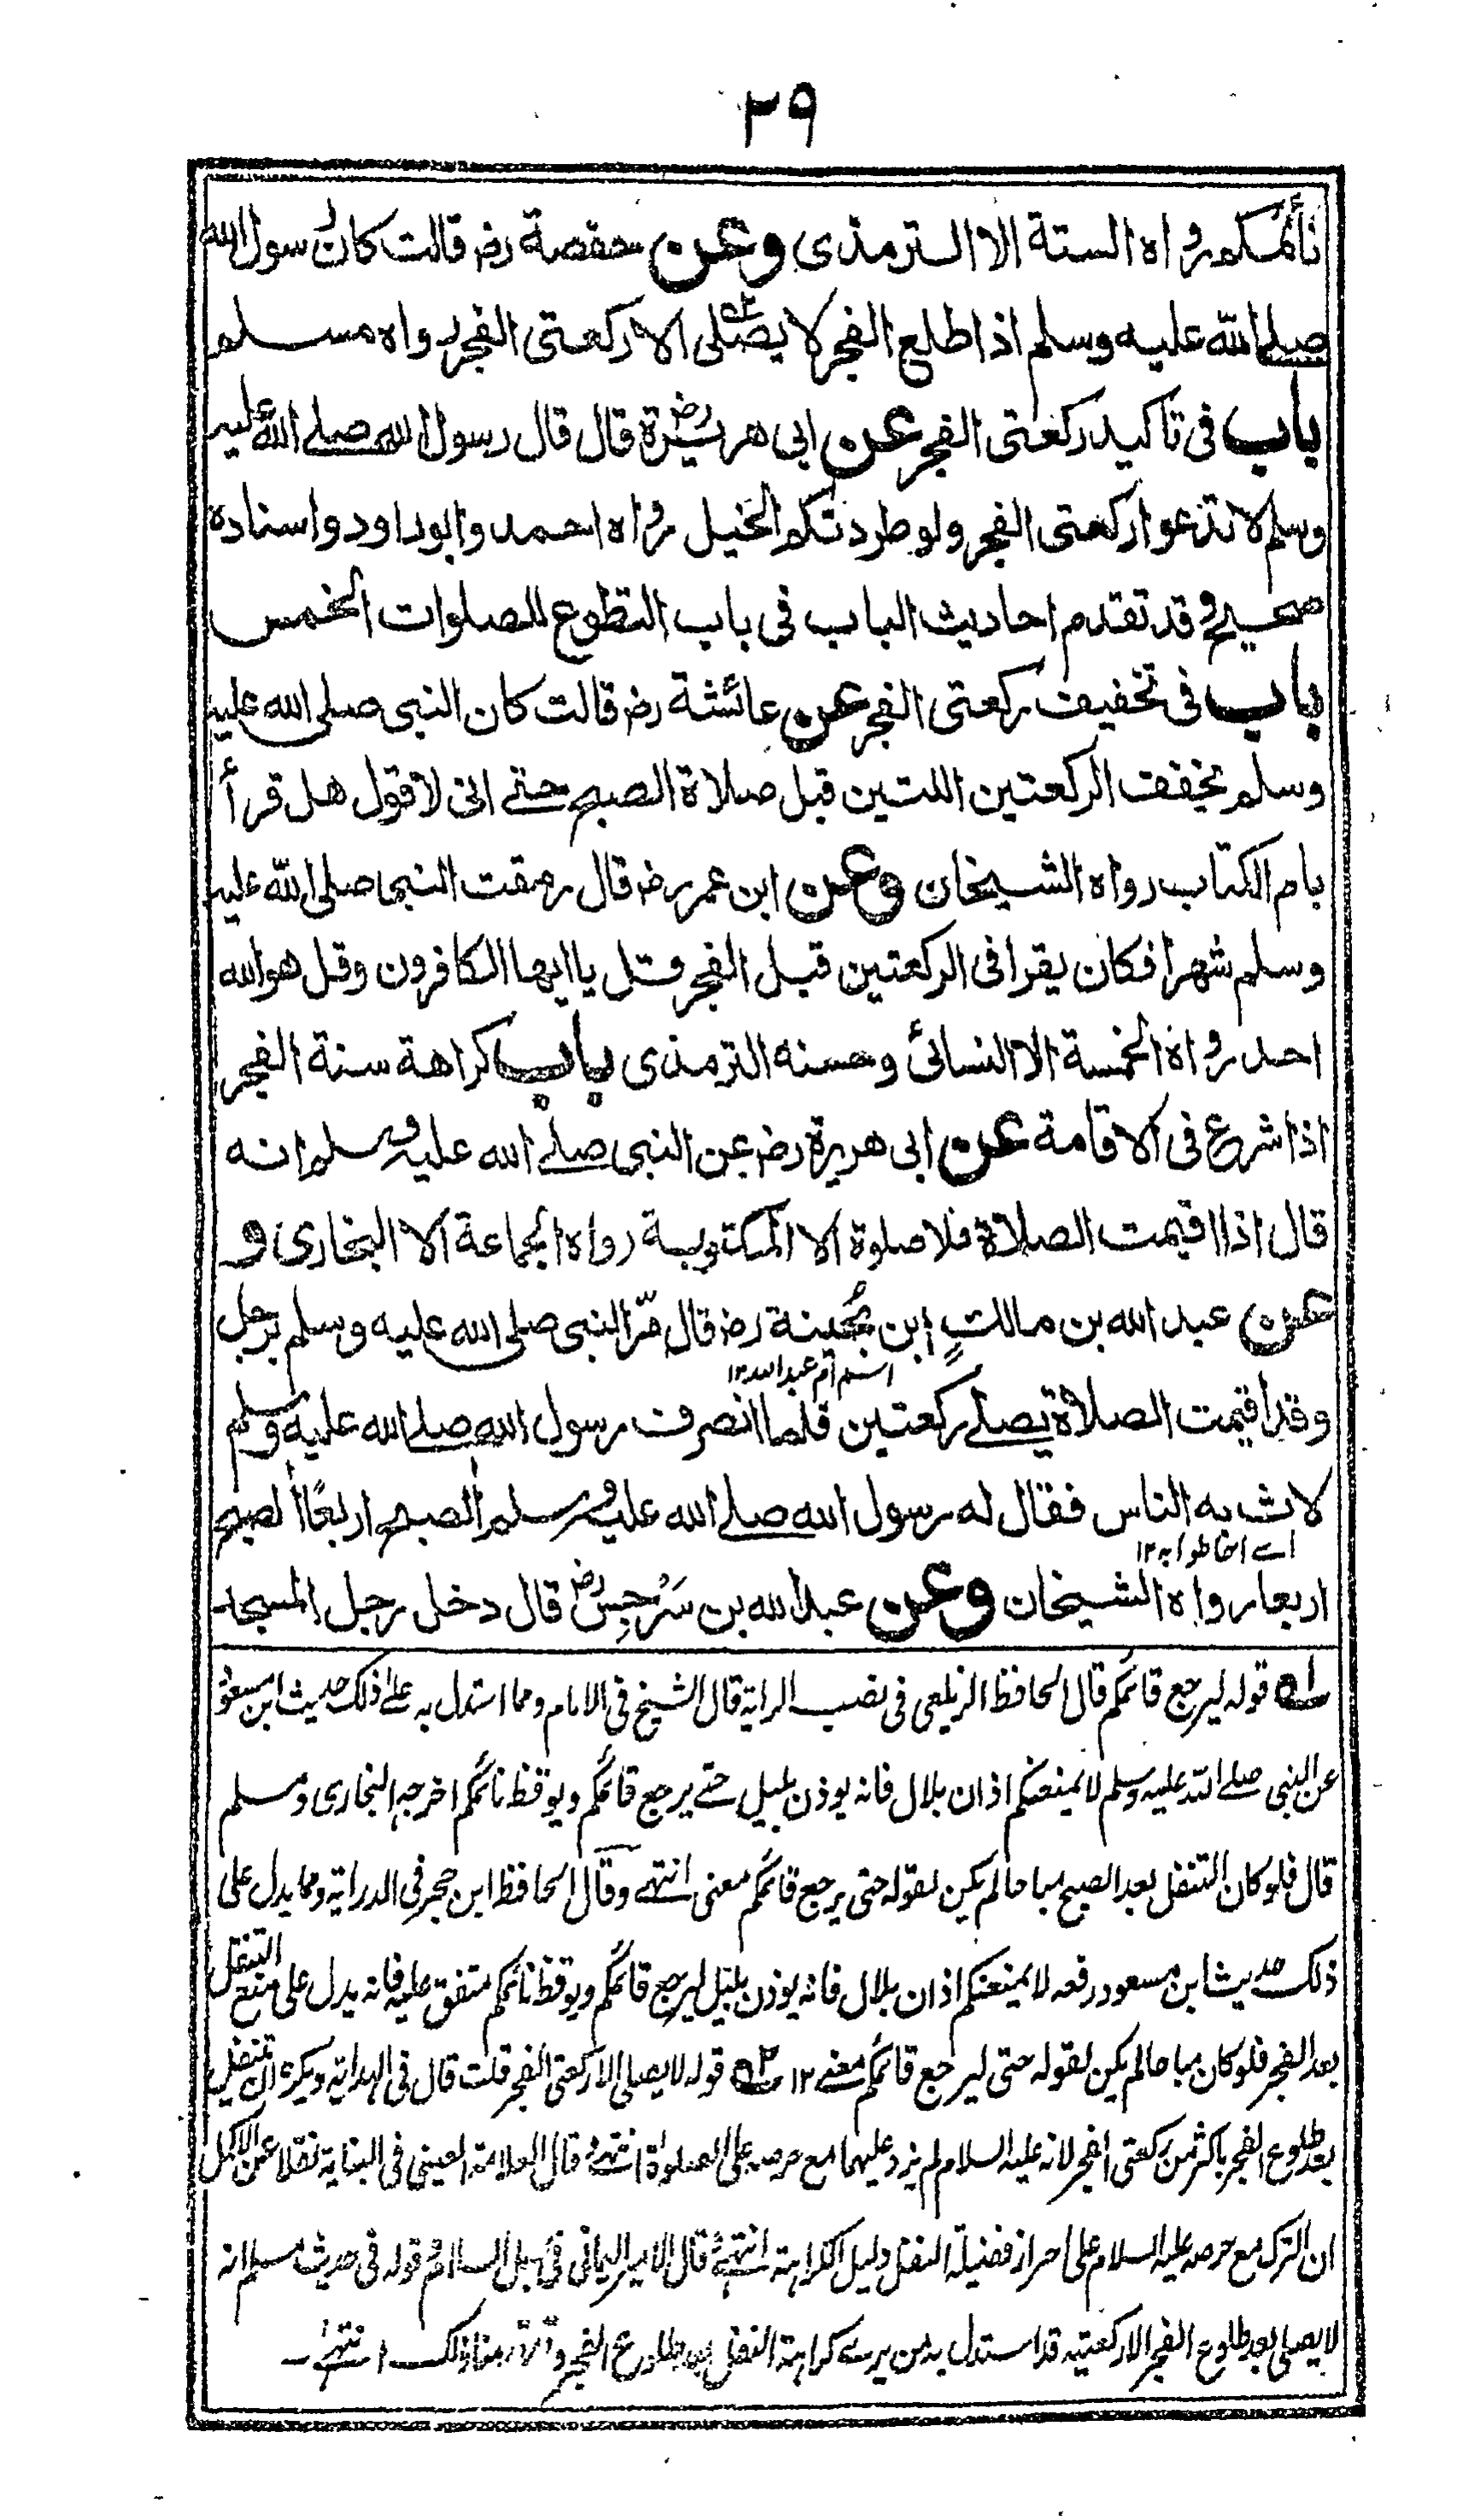 ٢٩
نائمكم رواه الستة الا الترمذى وعن حفصة رض قالت كان رسول الله
صلى الله عليه وسلم اذا طلع الفجر لا يصلى الا ركعتى الفجر رواه مسلم
باب فى تاكيد ركعتى الفجر عن ابى هريرة رض قال قال رسول الله صلى الله عليه
وسلم لا تدعوا ركعتى الفجر ولو طردتكم الخيل رواه احمد وابوداود واسناده
صحيح وقد تقدم احاديث الباب فى باب التطوع للصلوات الخمس
باب فى تخفيف ركعتى الفجر عن عائشة رض قالت كان النبى صلى الله عليه
وسلم يخفف الركعتين اللتين قبل صلاة الصبح حتى انى لاقول هل قرأ
بام الكتاب رواه الشيخان وعن ابن عمر رض قال رمقت النبى صلى الله عليه
وسلم شهرا فكان يقرا فى الركعتين قبل الفجر قل يا ايها الكافرون وقل هو الله
احد رواه الخمسة الا النسائى وحسنه الترمذى باب كراهة سنة الفجر
اذا شرع فى الاقامة عن ابى هريرة رض عن النبى صلى الله عليه وسلم انه
قال اذا اقيمت الصلاة فلا صلوة الا المكتوبة رواه الجماعة الا البخارى و
عن عبد الله بن مالك ابن بُحينة رض قال مرّ النبى صلى الله عليه وسلم برجل
اسم ام عبد الله ١٢
وقد اقيمت الصلاة يصلى ركعتين فلما انصرف رسول الله صلى الله عليه وسلم
لاث به الناس فقال له رسول الله صلى الله عليه وسلم الصبح اربعًا الصبح
اے احاطوا به ١٢
اربعا رواه الشيخان وعن عبد الله بن سَرْجِس رض قال دخل رجل المسجد
له١ قوله ليرجع قائمكم قال الحافظ الزيلعى فى نصب الراية قال الشيخ فى الامام ومما استدل به على ذلك حديث ابن مسعود
عن النبى صلى الله عليه وسلم لا يمنعنكم اذان بلال فانه يوذن بليل حتى يرجع قائمكم ويوقظ نائمكم اخرجه البخارى ومسلم
قال فلو كان التنفل بعد الصبح مباحا لم يكن لقوله حتى يرجع قائمكم معنى انتهى وقال الحافظ ابن حجر فى الدراية ومما يدل على
ذلك حديث ابن مسعود رفعه لا يمنعنكم اذان بلال فانه يوذن بليل ليرجع قائمكم ويوقظ نائمكم متفق عليه فانه يدل على منع التنفل
بعد الفجر فلو كان مباحا لم يكن لقوله حتى ليرجع قائمكم معنى ١٢ له٢ قوله لا يصلى الا ركعتى الفجر قلت قال فى الهداية ويكره ان يتنفل
بعد طلوع الفجر باكثر من ركعتى الفجر لانه عليه السلام لم يزد عليهما مع حرصه على الصلوة انتهى قال العلامة العينى فى البناية نقلا عن الاكمل
ان الترك مع حرصه عليه السلام على احراز فضيلة النفل دليل الكراهة انتهى قال الامير اليمانى فى سبل السلام قوله فى حديث مسلم انه
لا يصلى بعد طلوع الفجر الا ركعتيه قد استدل به من يرى كراهة النفل بعد طلوع الفجر ذلك انتهى ـ